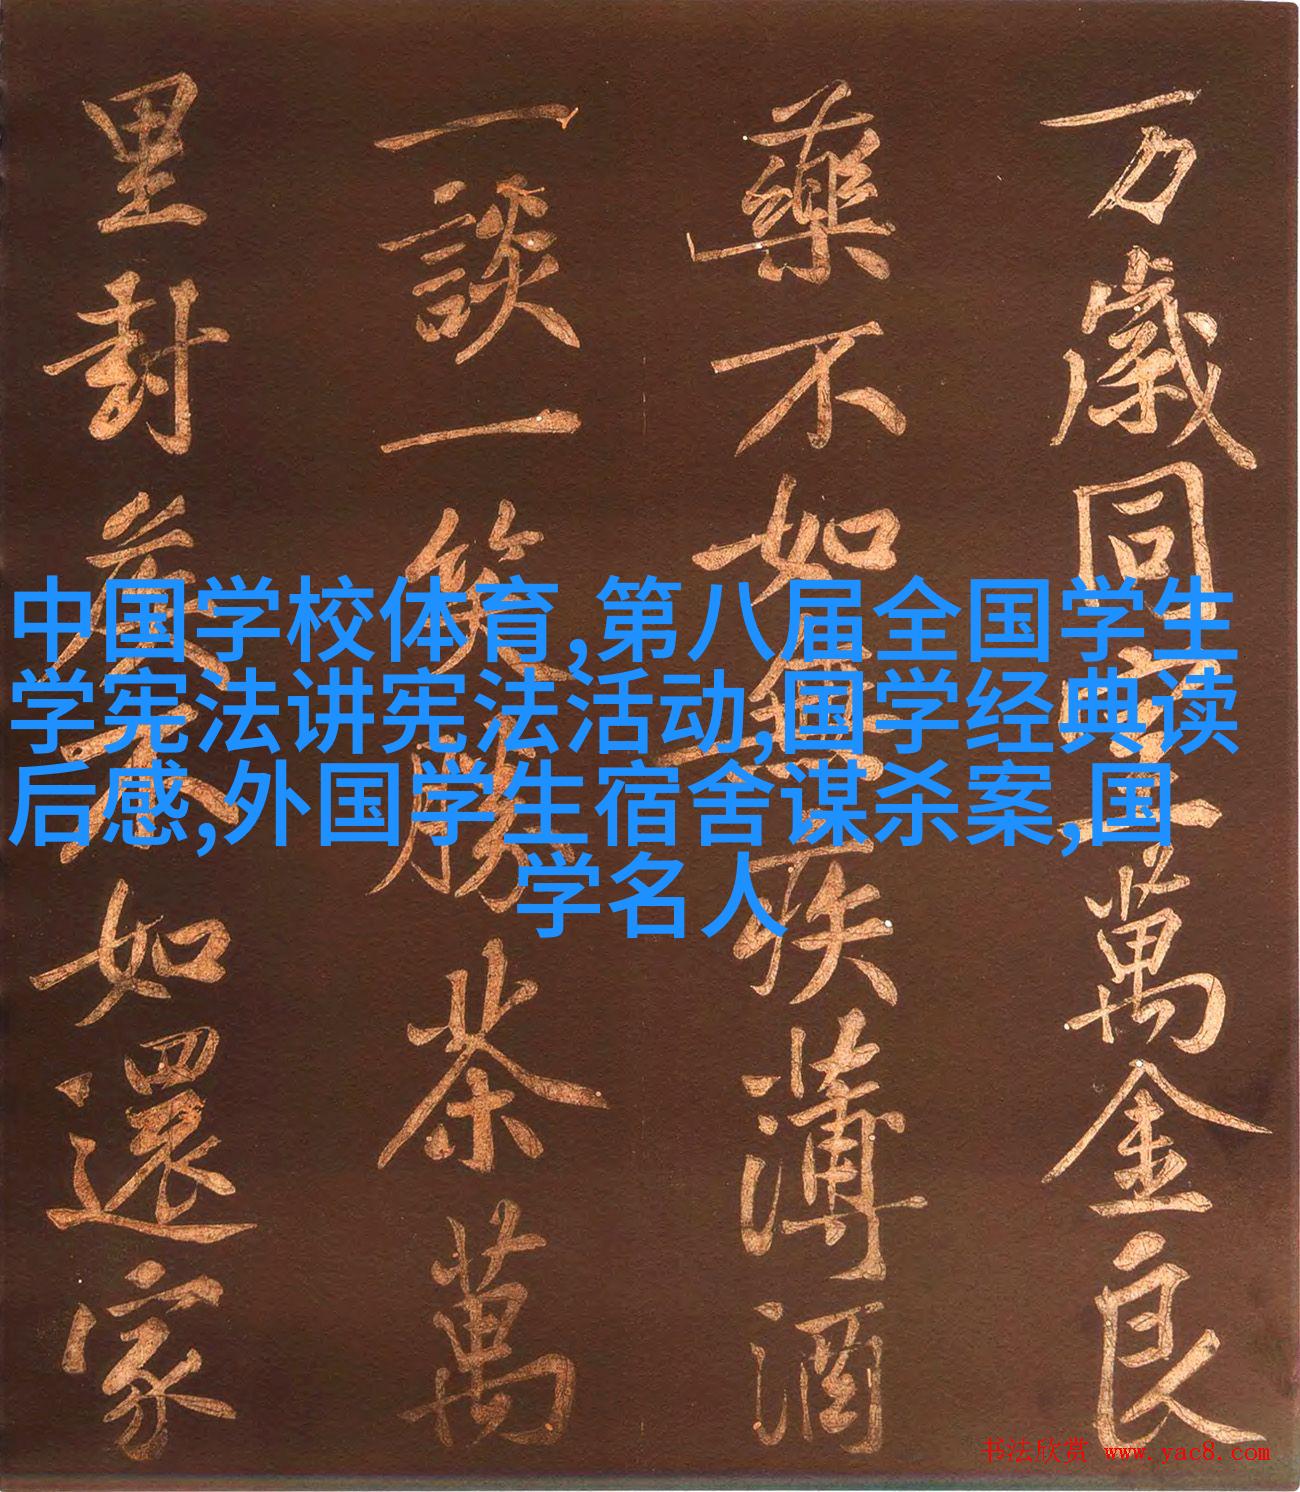 万歲同室萬金良
藥不如無疾薄酒
一談一笑勝茶萬
里封侯不如還家
中国学校体育,第八届全国学生
学宪法讲宪法活动,国学经典读
后感,外国学生宿舍谋杀案,国
学名人
书法欣赏 www.yac8.com